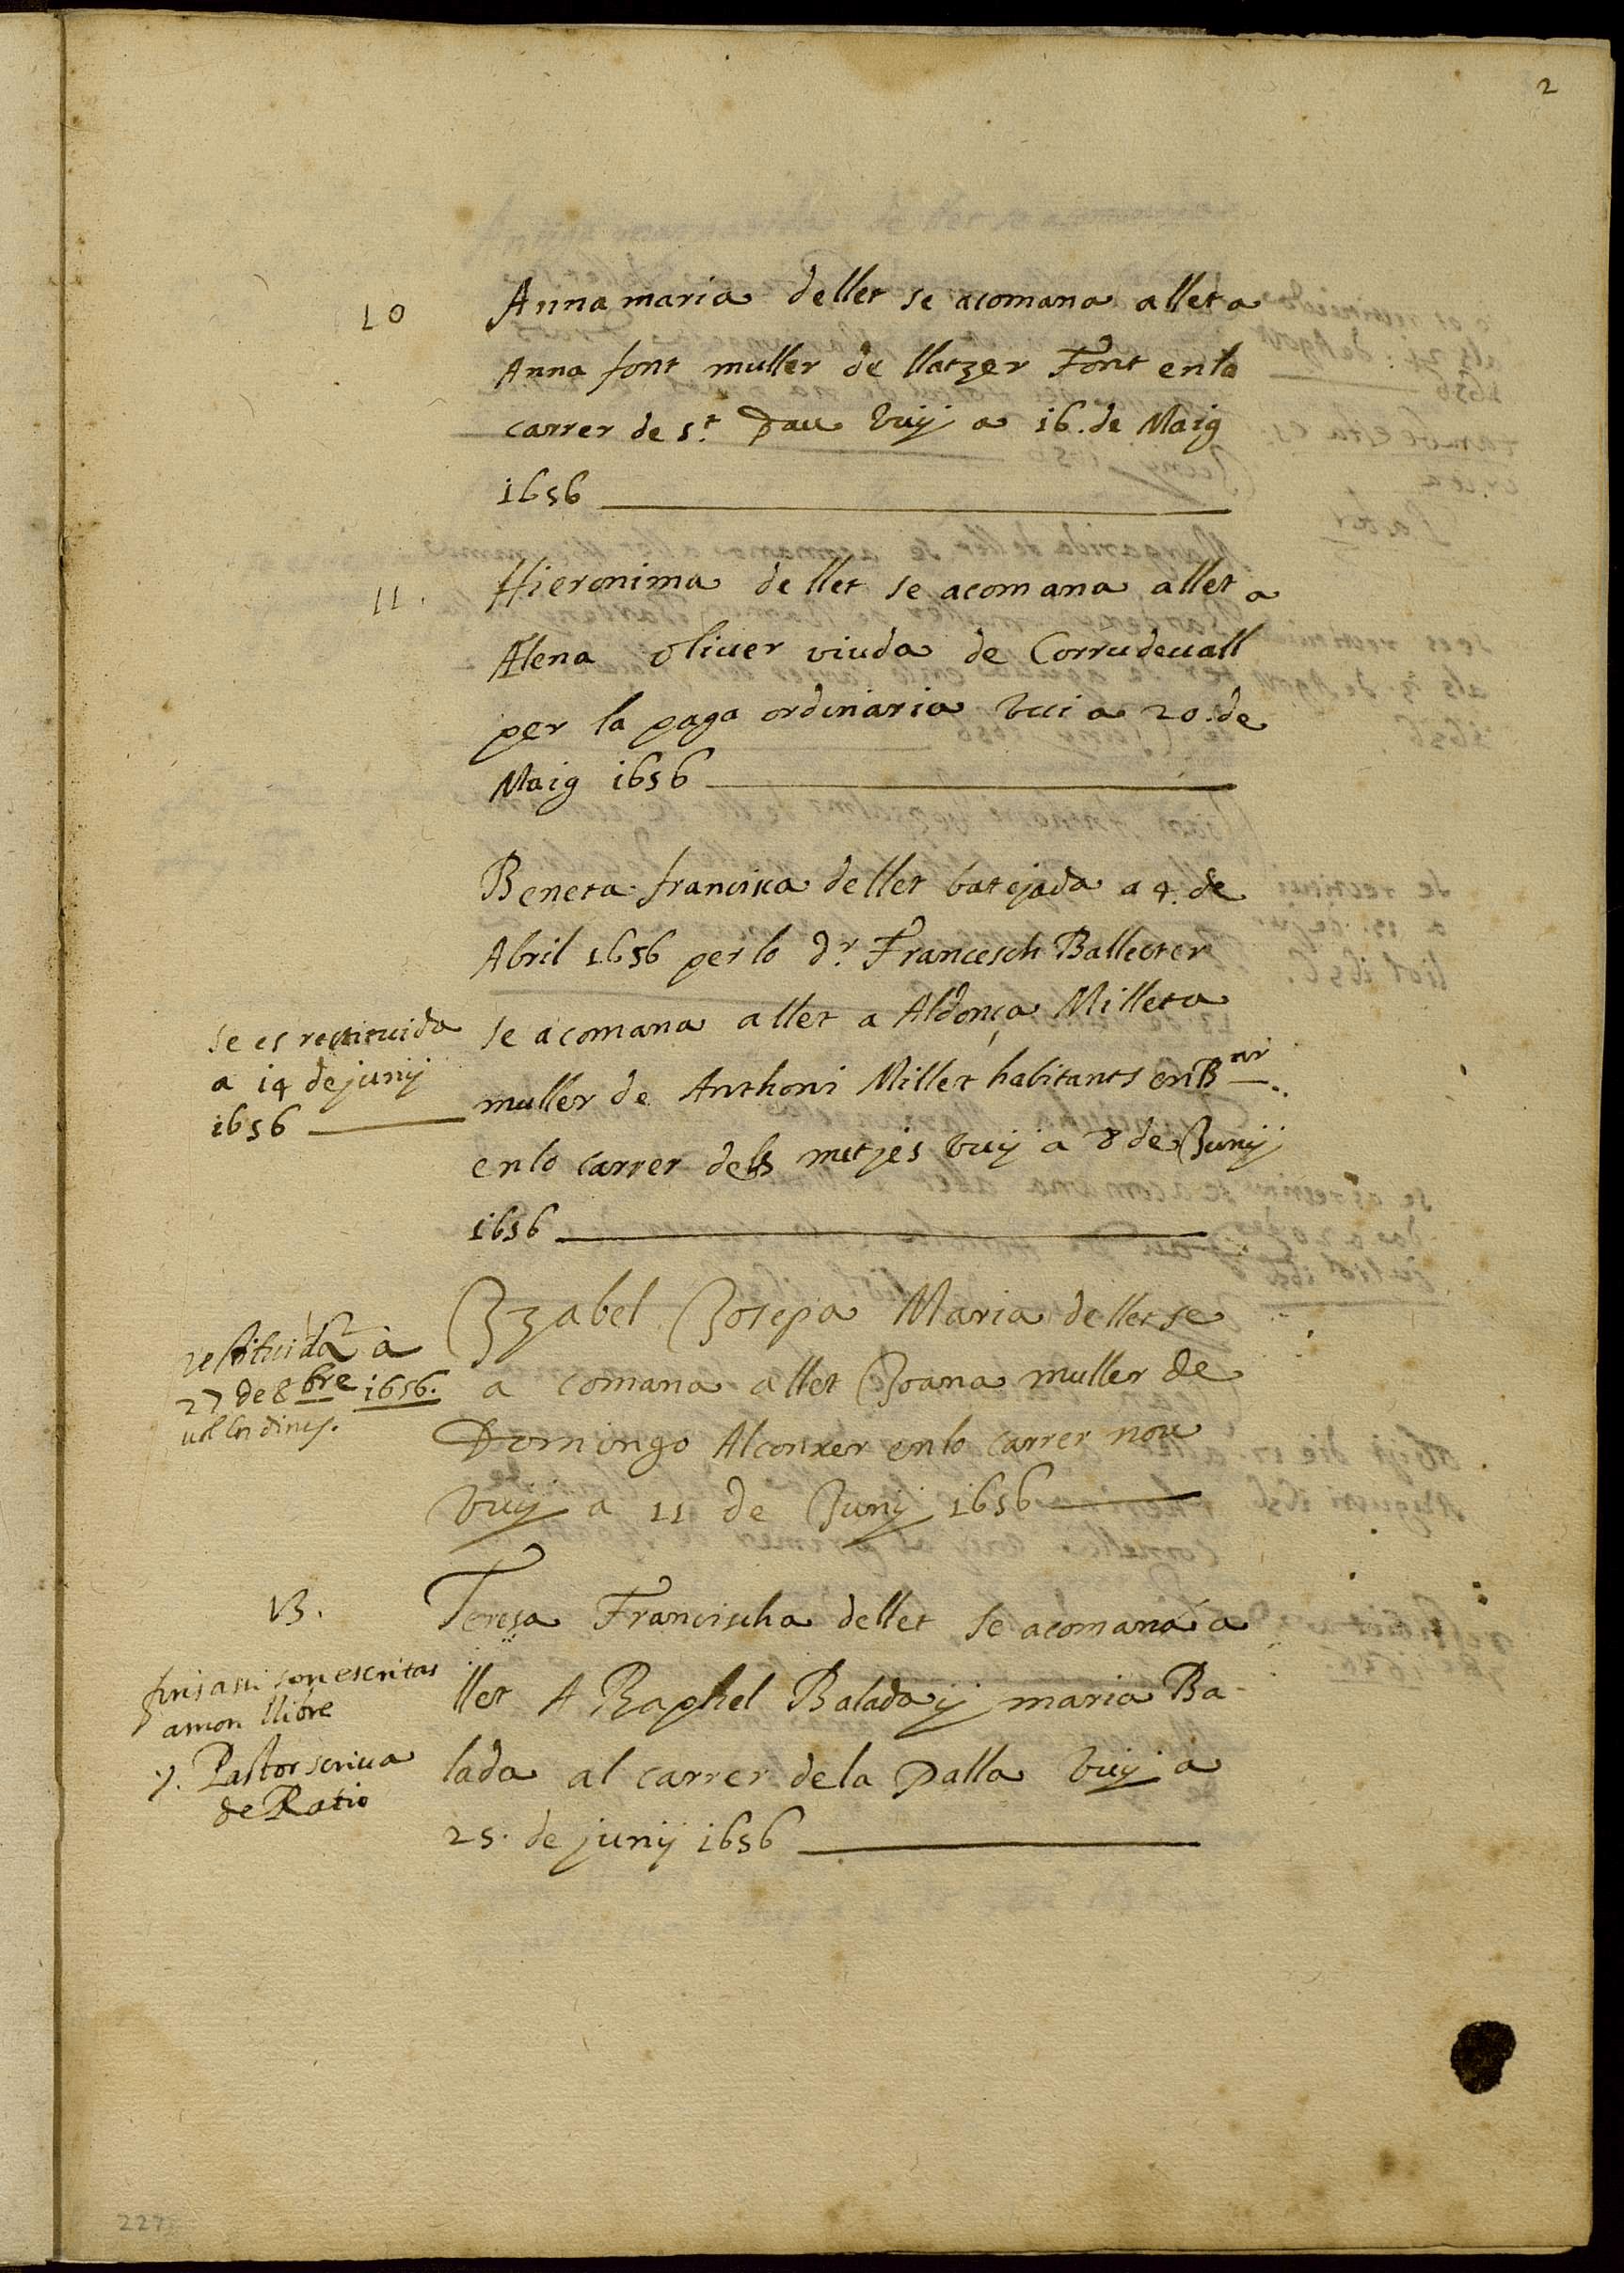 2
10
Anna maria de llet se acomana a llet a
Anna font muller de llatzer Font en lo
carrer de s.t Pau vuÿ a 16. de Maig
1656
11.
Hieronima de llet se acomana a llet a
Alena oliuer viuda de Corrudeuall
per la paga ordinaria vui a 20. de
Maig 1656
Beneta francisca de llet batejada a 4. de
Abril 1656 per lo dr. Francesch Ballecter
se acomana a llet a Aldonça Milleta
muller de Anthoni Millet habitants en Bar.
en lo carrer dels metjes vuÿ a 8 de Junÿ
1656
se es restituida
a 14 de junÿ
1656
Izabel Josepa Maria de llet se
a comana a llet Joana muller de
Domingo Alconxer en lo carrer nou
vuÿ a 11 de Junÿ 1656
restituida à
27 de 8bre 1656.
13.
Teresa Francischa de llet se acomana a
llet A Raphel Balada ÿ maria Ba-
lada al carrer de la Palla vuÿ a
25. de junÿ 1656
fins assi son escritas
a mon llibre
Pastor scriua
de Ratio
227